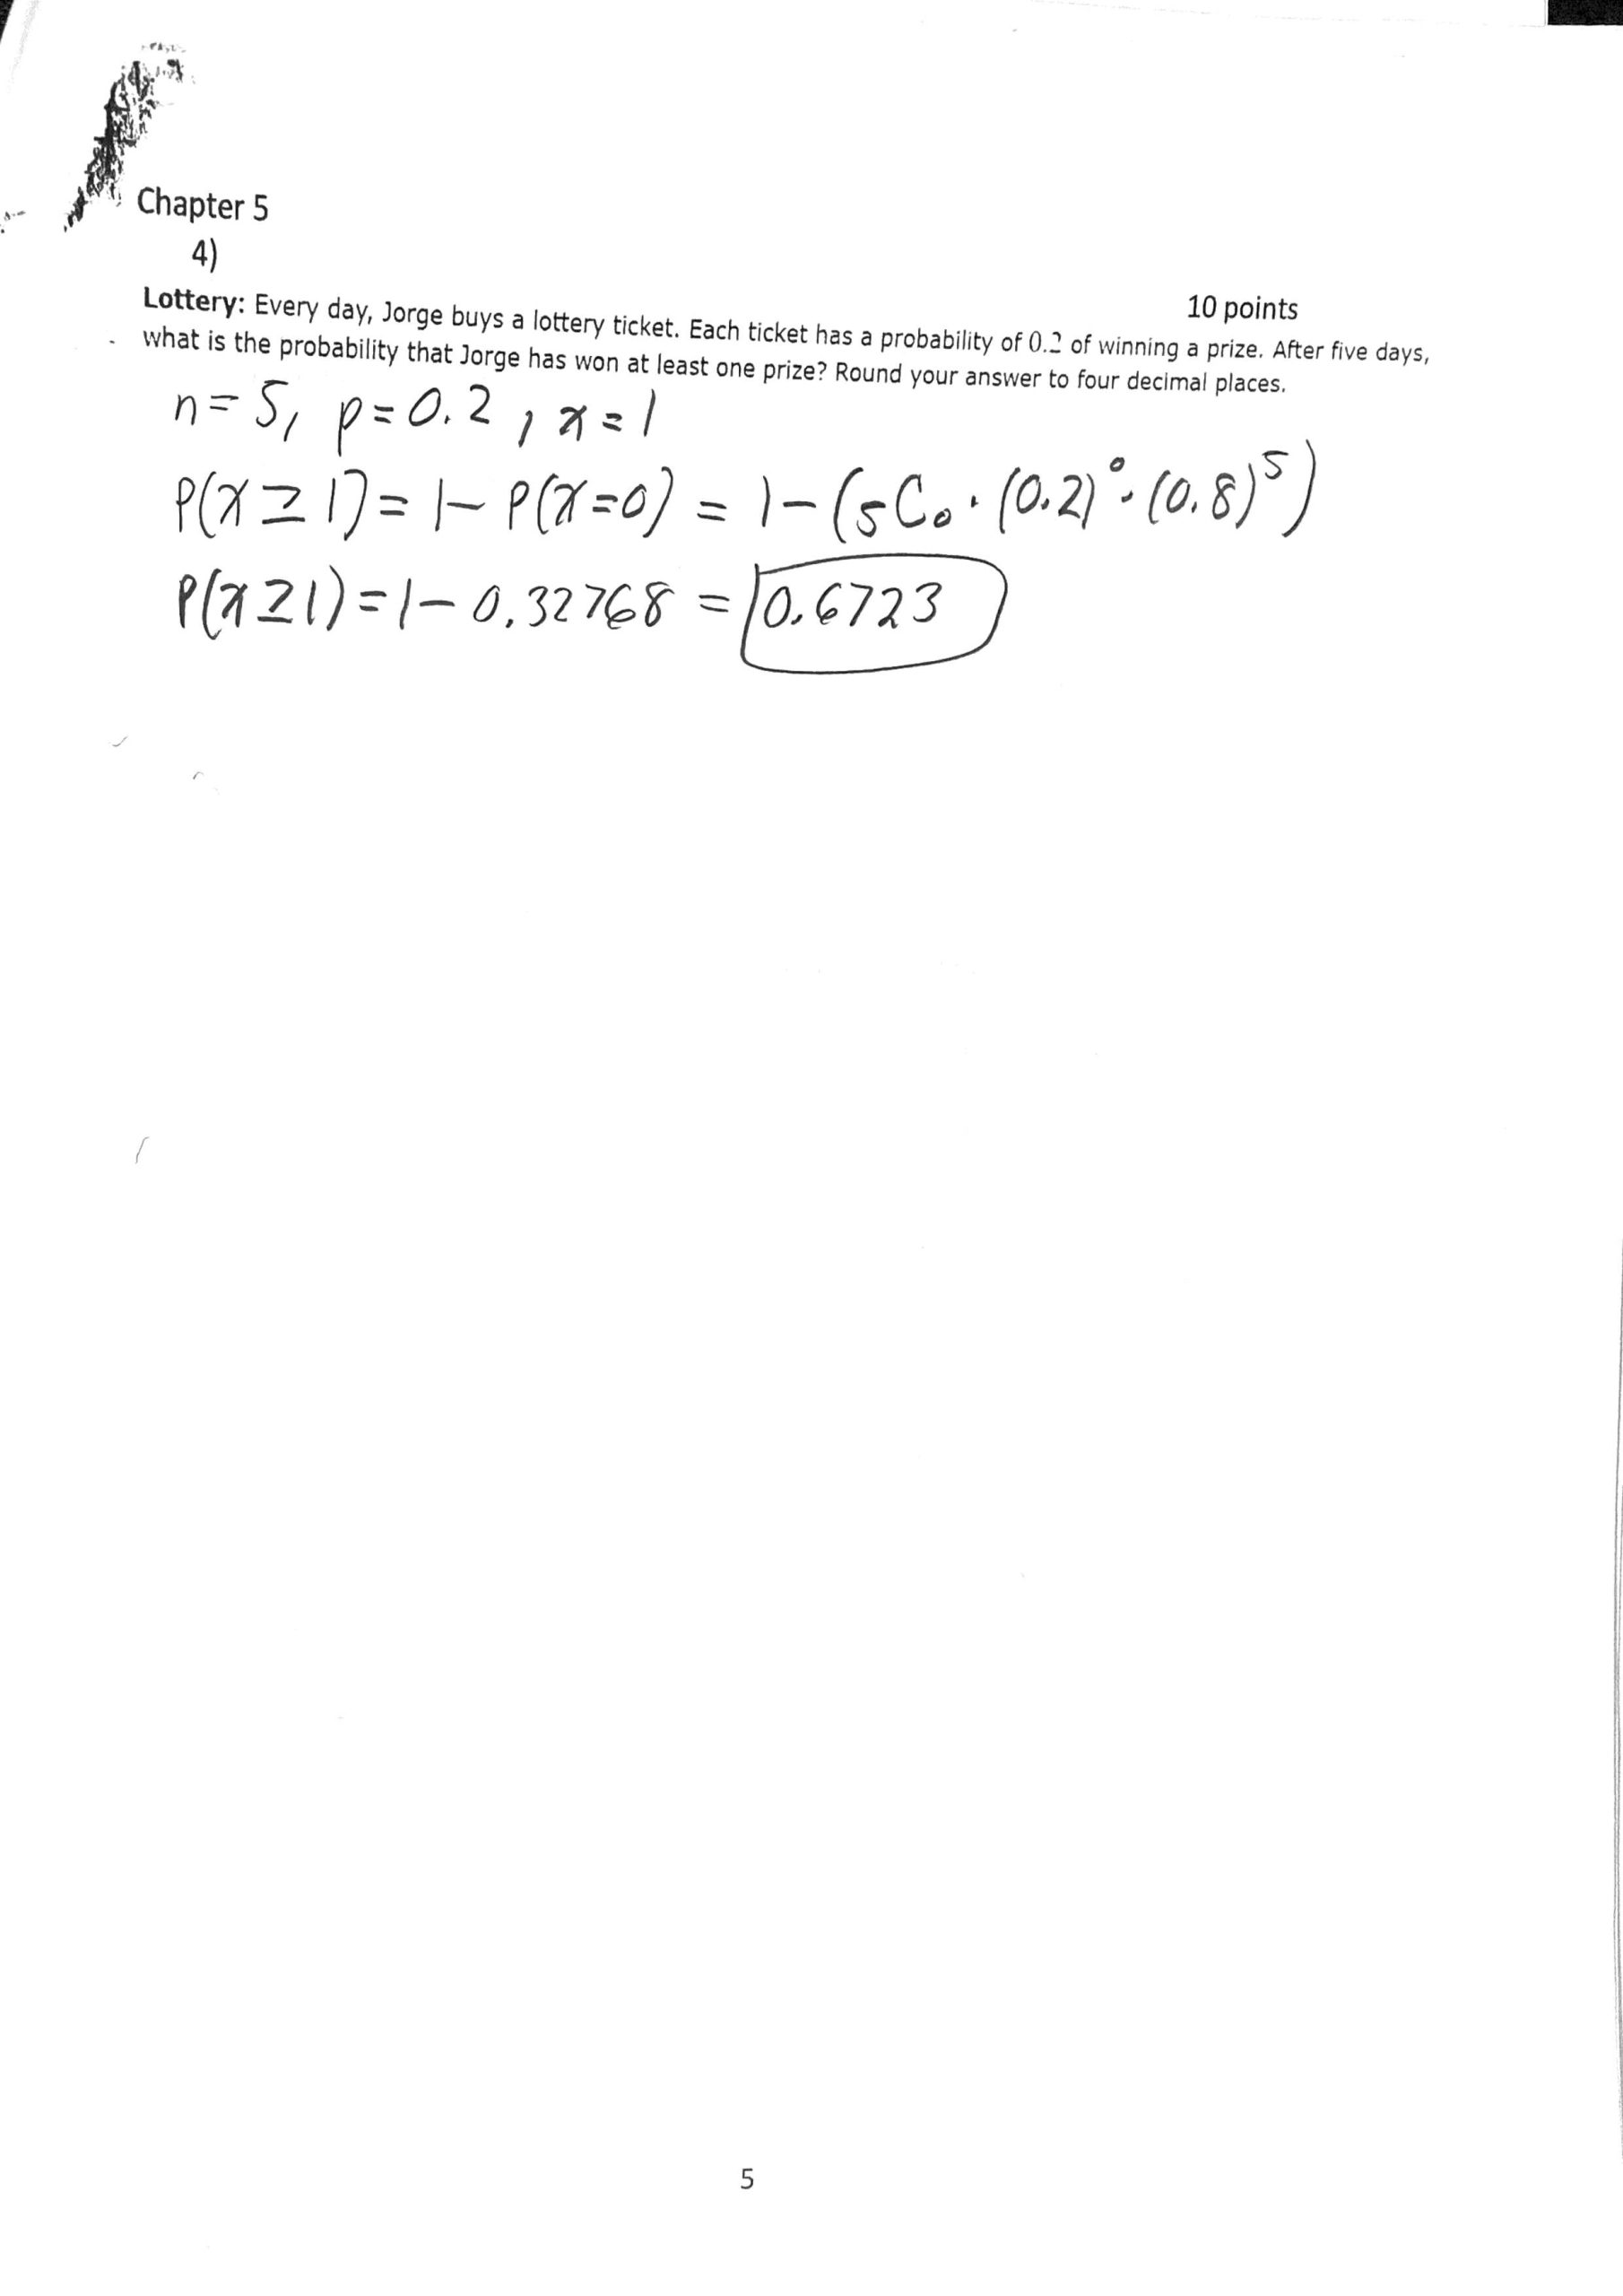 Chapter 5
4)
10 points
Lottery: Every day, Jorge buys a lottery ticket. Each ticket has a probability of 0.2 of winning a prize. After five days,
what is the probability that Jorge has won at least one prize? Round your answer to four decimal places.
n = 5, p = 0.2, x = 1
P(x ≥ 1) = 1 - P(x=0) = 1 - (₅C₀ · (0.2)⁰ · (0.8)⁵)
P(x ≥ 1) = 1 - 0.32768 = 0.6723
5